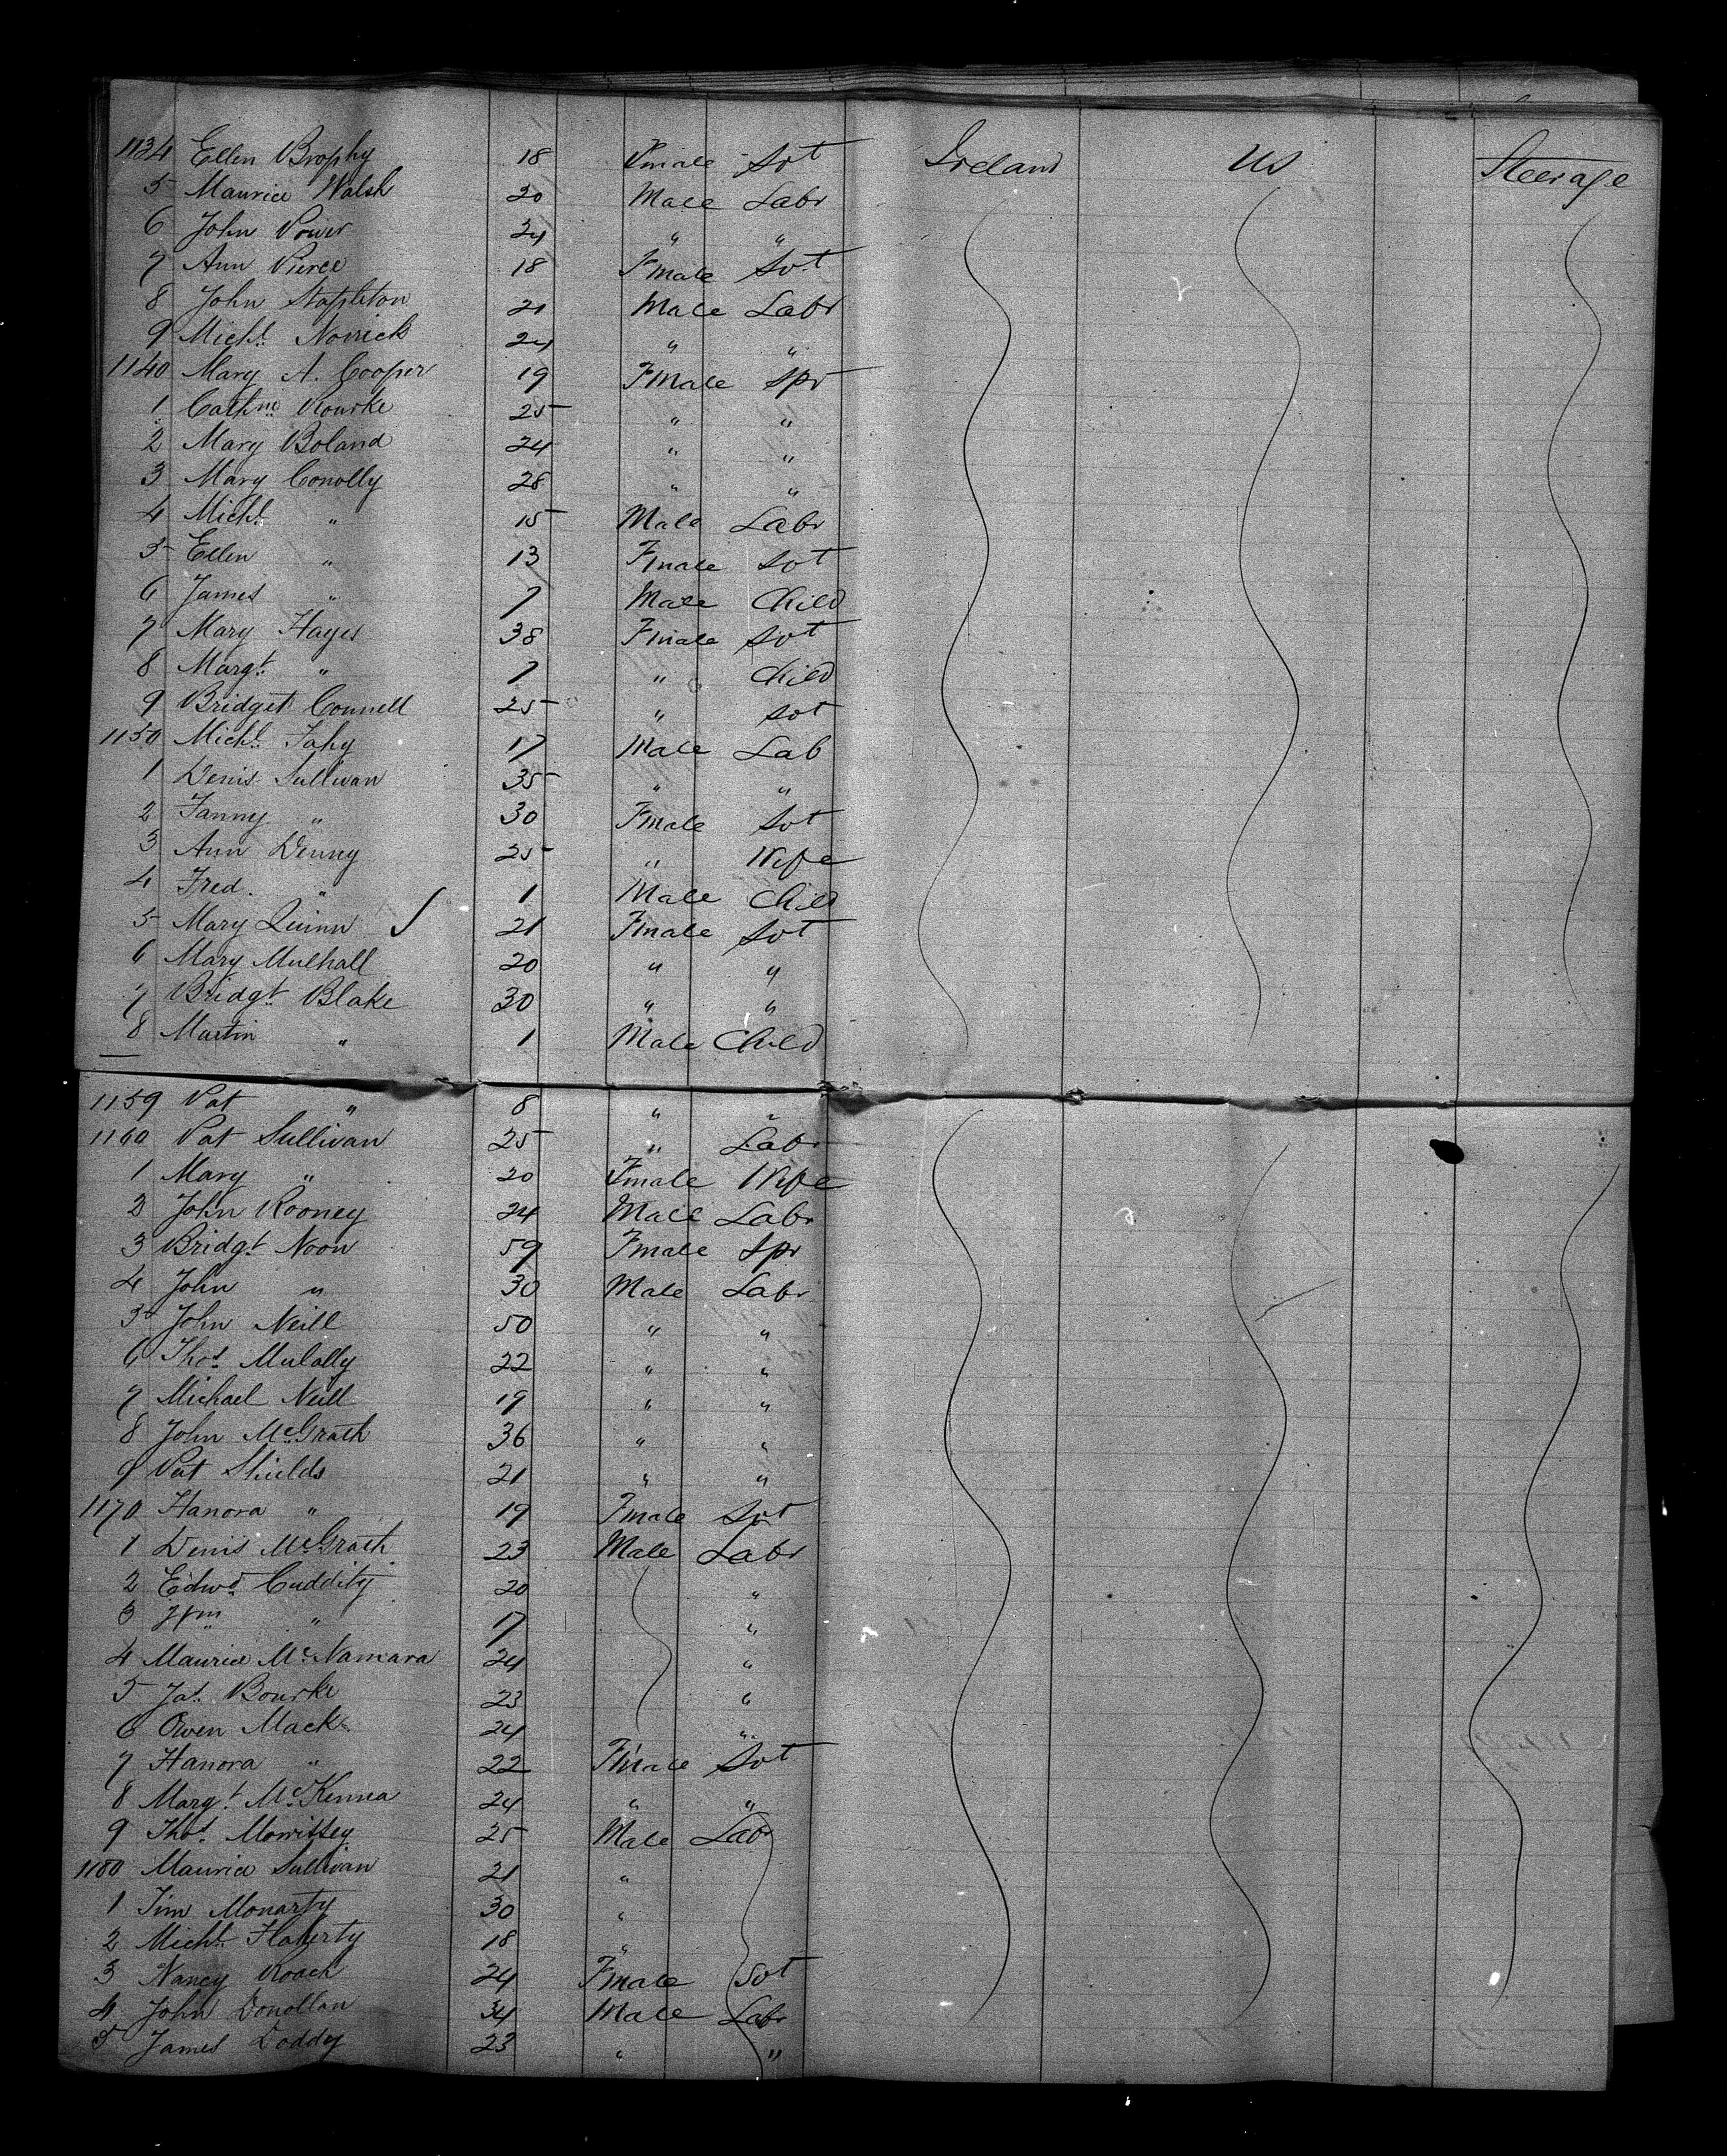 1134 Ellen Brophy 18 Fmale Svt Ireland US Steerage
5 Maurice Walsh 20 Male Labr
6 John Power 24 " "
7 Ann Pierce 18 Fmale Svt
8 John Stapleton 21 Male Labr
9 Michl. 24 " "
1140 Mary A. Cooper 19 Fmale Spr
1 Cathne Rourke 25 " "
2 Mary Boland 24 " "
3 Mary Conolly 28 " "
4 Michl. " 15 Male Labr
5 Ellen " 13 Fmale Svt
6 James " 7 Male Child
7 Mary Hayes 38 Fmale Svt
8 Margt. " 7 " Child
9 Bridget Connell 25 " Svt
1150 Michl. Fahy 17 Male Lab
1 Denis Sullivan 35 " "
2 Fanny " 30 Fmale Svt
3 Ann Denny 25 " Wife
4 Fred. " 1 Male Child
5 Mary Quinn 21 Fmale Svt
6 Mary Mulhall 20 " "
7 Bridgt. Blake 30 " "
8 Martin " 1 Male Child
1159 Pat " 8 " "
1160 Pat Sullivan 25 " Labr
1 Mary " 20 Fmale Wife
2 John Rooney 24 Male Labr
3 Bridgt. Noon 59 Fmale Spr
4 John " 30 Male Labr
5 John Neill 50 " "
6 Thos. Mulally 22 " "
7 Michael Neill 19 " "
8 John McGrath 36 " "
9 Pat Shields 21 " "
1170 Hanora " 19 Fmale Svt
1 Denis McGrath 23 Male Labr
2 Edwd. Cuddity 20 "
3 Wm " 17 "
4 Maurice McNamara 24 "
5 Jas. Bourke 23 "
6 Owen Mack 24 "
7 Hanora " 22 Fmale Svt
8 Margt. McKenna 24 " "
9 Thos. Morrissey 25 Male Labr
1180 Maurice Sullivan 21 "
1 Tim 30 "
2 Michl. Flaherty 18 "
3 Nancy Roach 24 Fmale Svt
4 John Donollan 34 Male Labr
5 James Doddy 23 " "